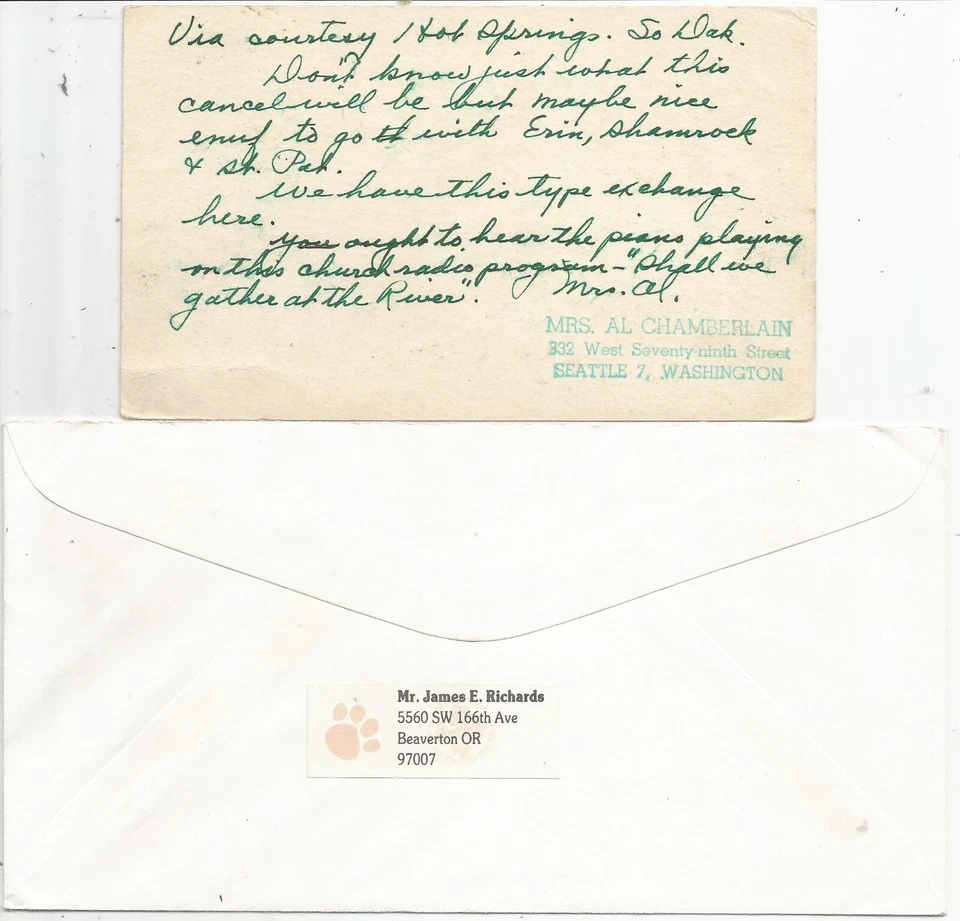 Via courtesy Hot Springs. So Dak.
Don't know just what this
cancel will be but maybe nice
enuf to go tt with Erin, Shamrock
& St. Pat.
We have this type exchange
here.
You ought to hear the piano playing
on this church radio program - "Shall we
gather at the River". Mrs. Al.
MRS. AL CHAMBERLAIN
332 West Seventy-ninth Street
SEATTLE 7, WASHINGTON
Mr. James E. Richards
5560 SW 166th Ave
Beaverton OR
97007